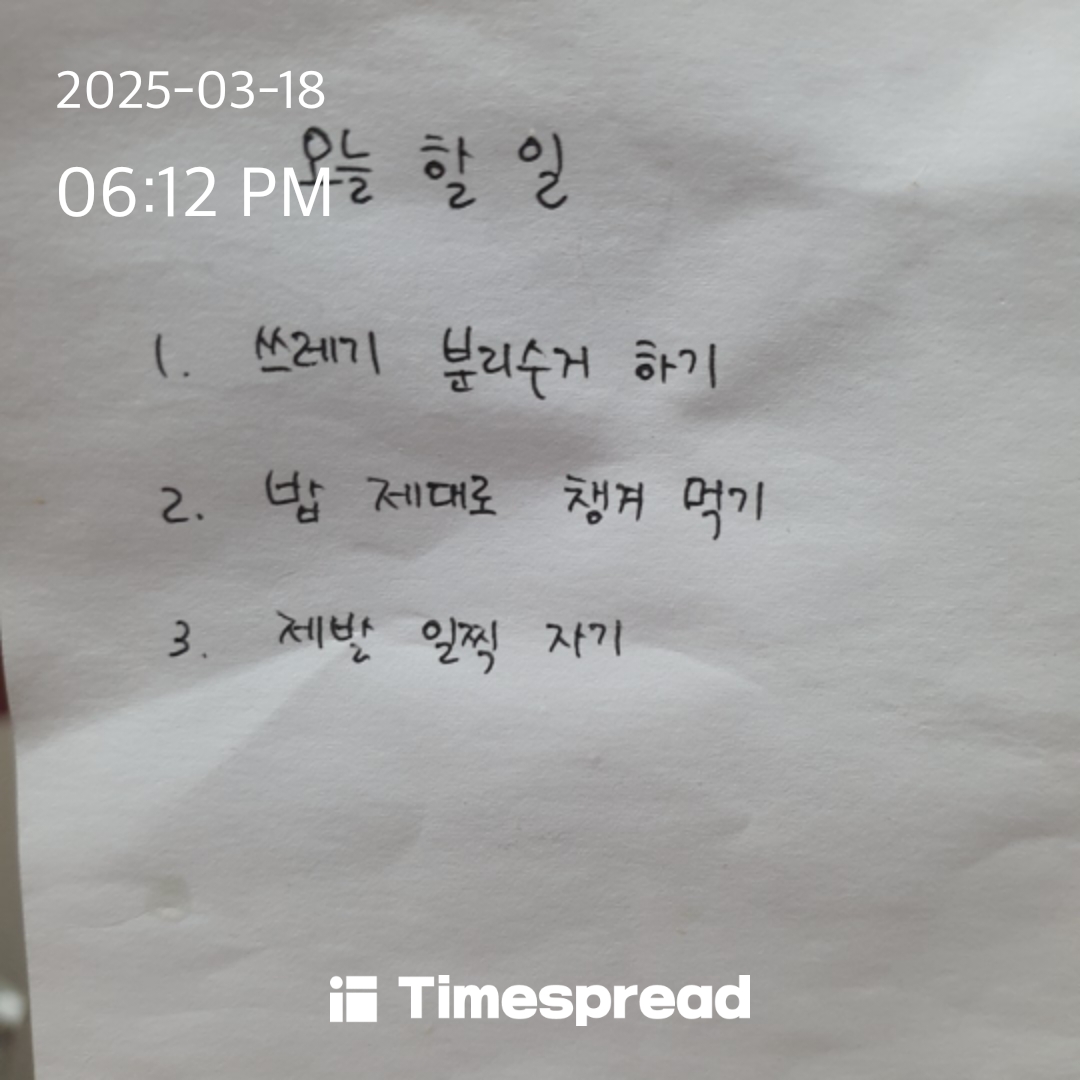 2025-03-18
오늘 할 일
06:12 PM
1. 쓰레기 분리수거 하기
2. 밥 제대로 챙겨 먹기
3. 제발 일찍 자기
Timespread